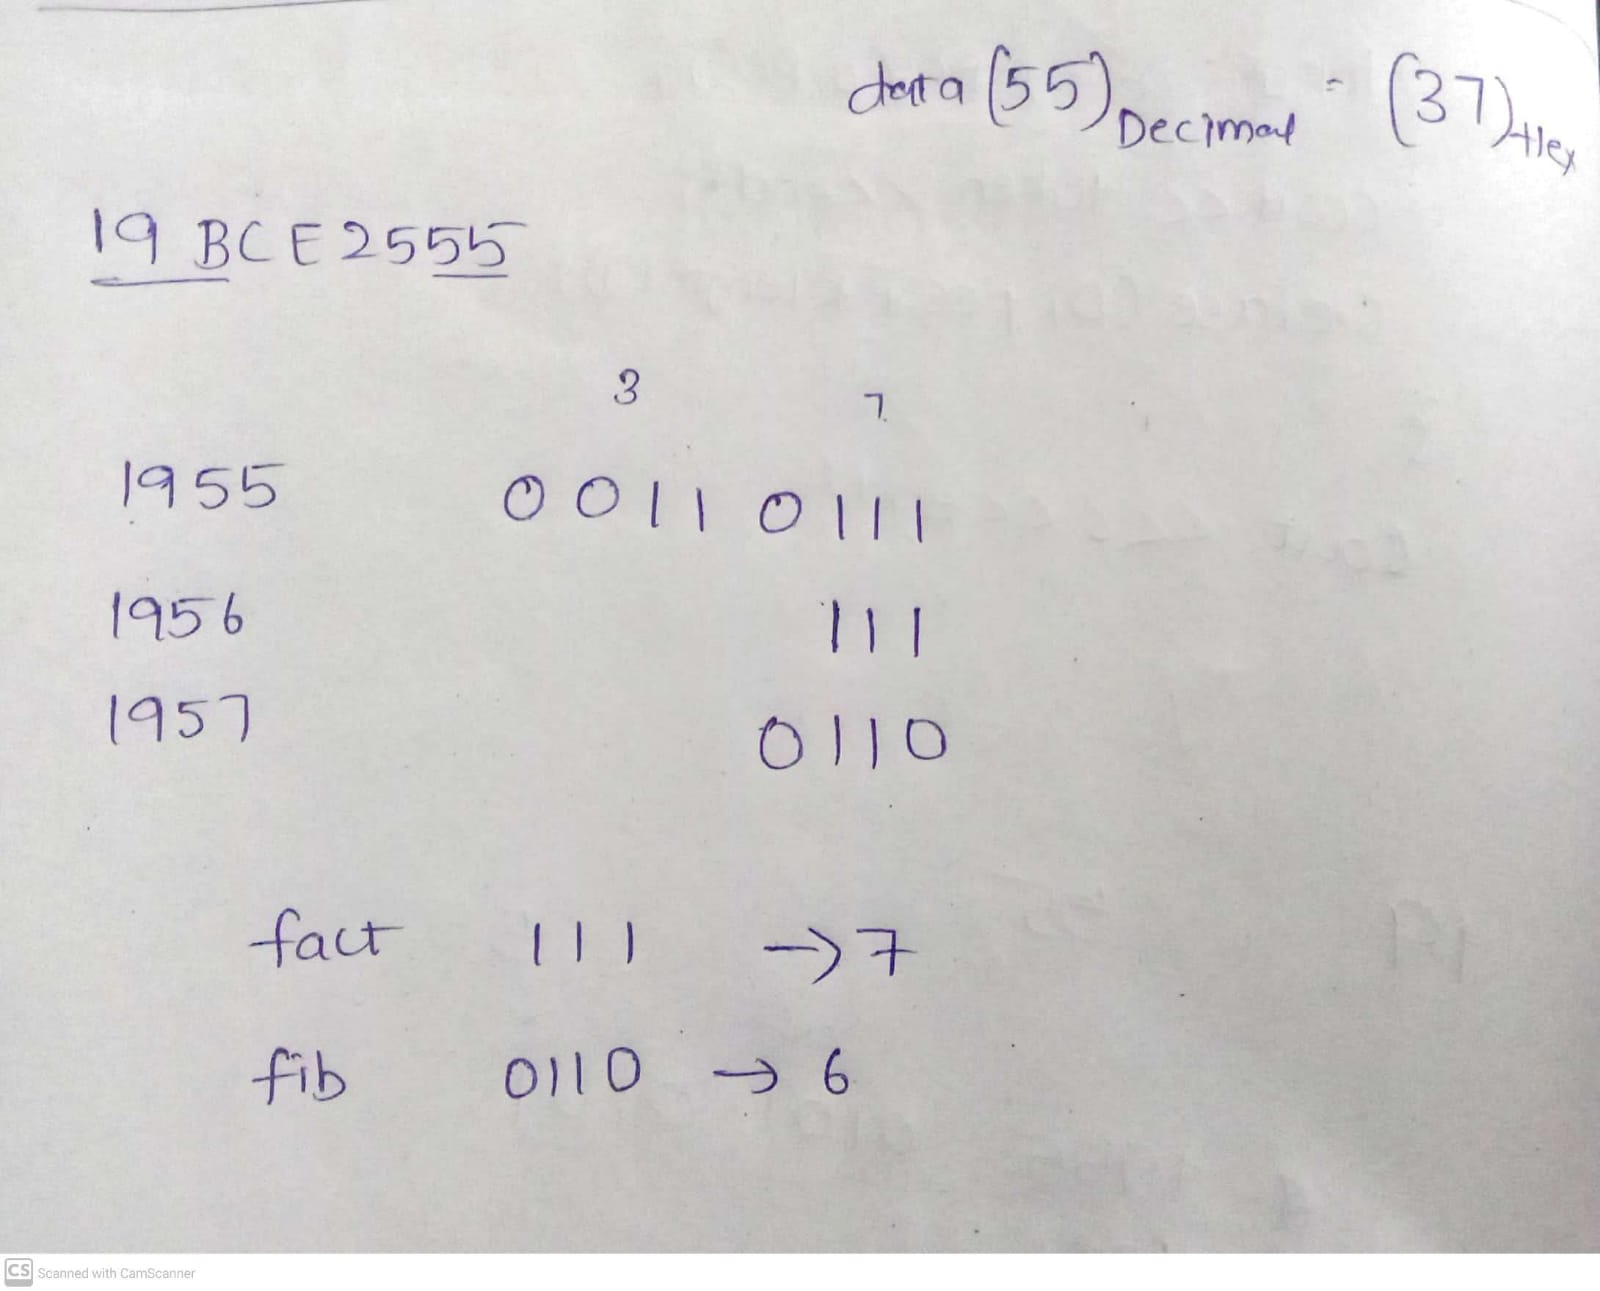 data (55)Decimal = (37)Hex
19 BCE2555
3 7
1955 0011 0111
1956 111
1957 0110
fact 111 → 7
fib 0110 → 6
CS Scanned with CamScanner